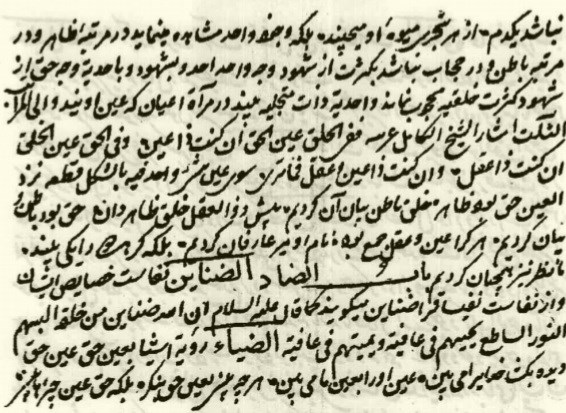 نباشد یکدم از هر شجری میوهٔ او میچیند بلکه وجه واحد مشاهده مینماید در مرتبه اظاهر و در
مرتبه باطن و در حجاب نباشد بکثرت از شهود وجه واحد احد و بشهود و باحدیة وجه حق از
شهود کثرت خلقیه محجوب نماند و احدیة ذات متجلیه بیند در مرآة اعیان که عین اویند والی المراتب
الثلث اشار الشیخ الکامل عرصه ففی الخلق عین الحق ان کنت ذا عین وفی الحق عین الخلق
ان کنت ذا عقل وان کنت ذا عین وعقل فما تری سوی عین شیء واحد فیه بالشکل قطعه نزد
العین حق بود ظاهر خلق باطن بیان آن کردیم پیش ذو العقل خلق ظاهر دان حق بود باطن و
بیان کردیم هر کرا عین و عقل جمع بود نام او نیز عارفان کردیم بلکه کر هر دو را یکی بیند
ما نظر نیز همچنان کردیم باب الضاد الضناین نفاست خصایص ایشان
و از نفاست نفیسه قرا ضناین میگویند کما قال علیه السلام ان لله ضناین من خلقه البسهم
النور الساطع یحییهم فی عافیة ویمیتهم فی عافیة الضیاء رؤیة اشیا بعین حق عین حق
دیده بکشا خدایرا می بین عین او را بعین ما می بین هر چه بینی بعین حق بنگر بلکه حق عین